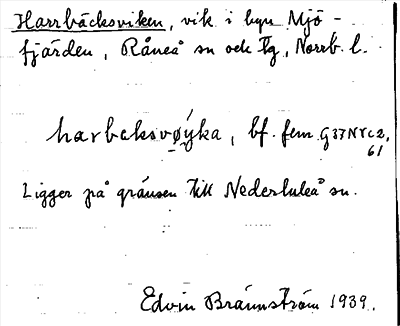 Harrbäcksviken, vik i byn Mjö-
fjärden, Råneå sn och tg, Norrb. l.
harbcksvøyka, bf. fem. G37NYC2,
61
Ligger på gränsen till Nederluleå sn.
Edvin Brännström 1939.